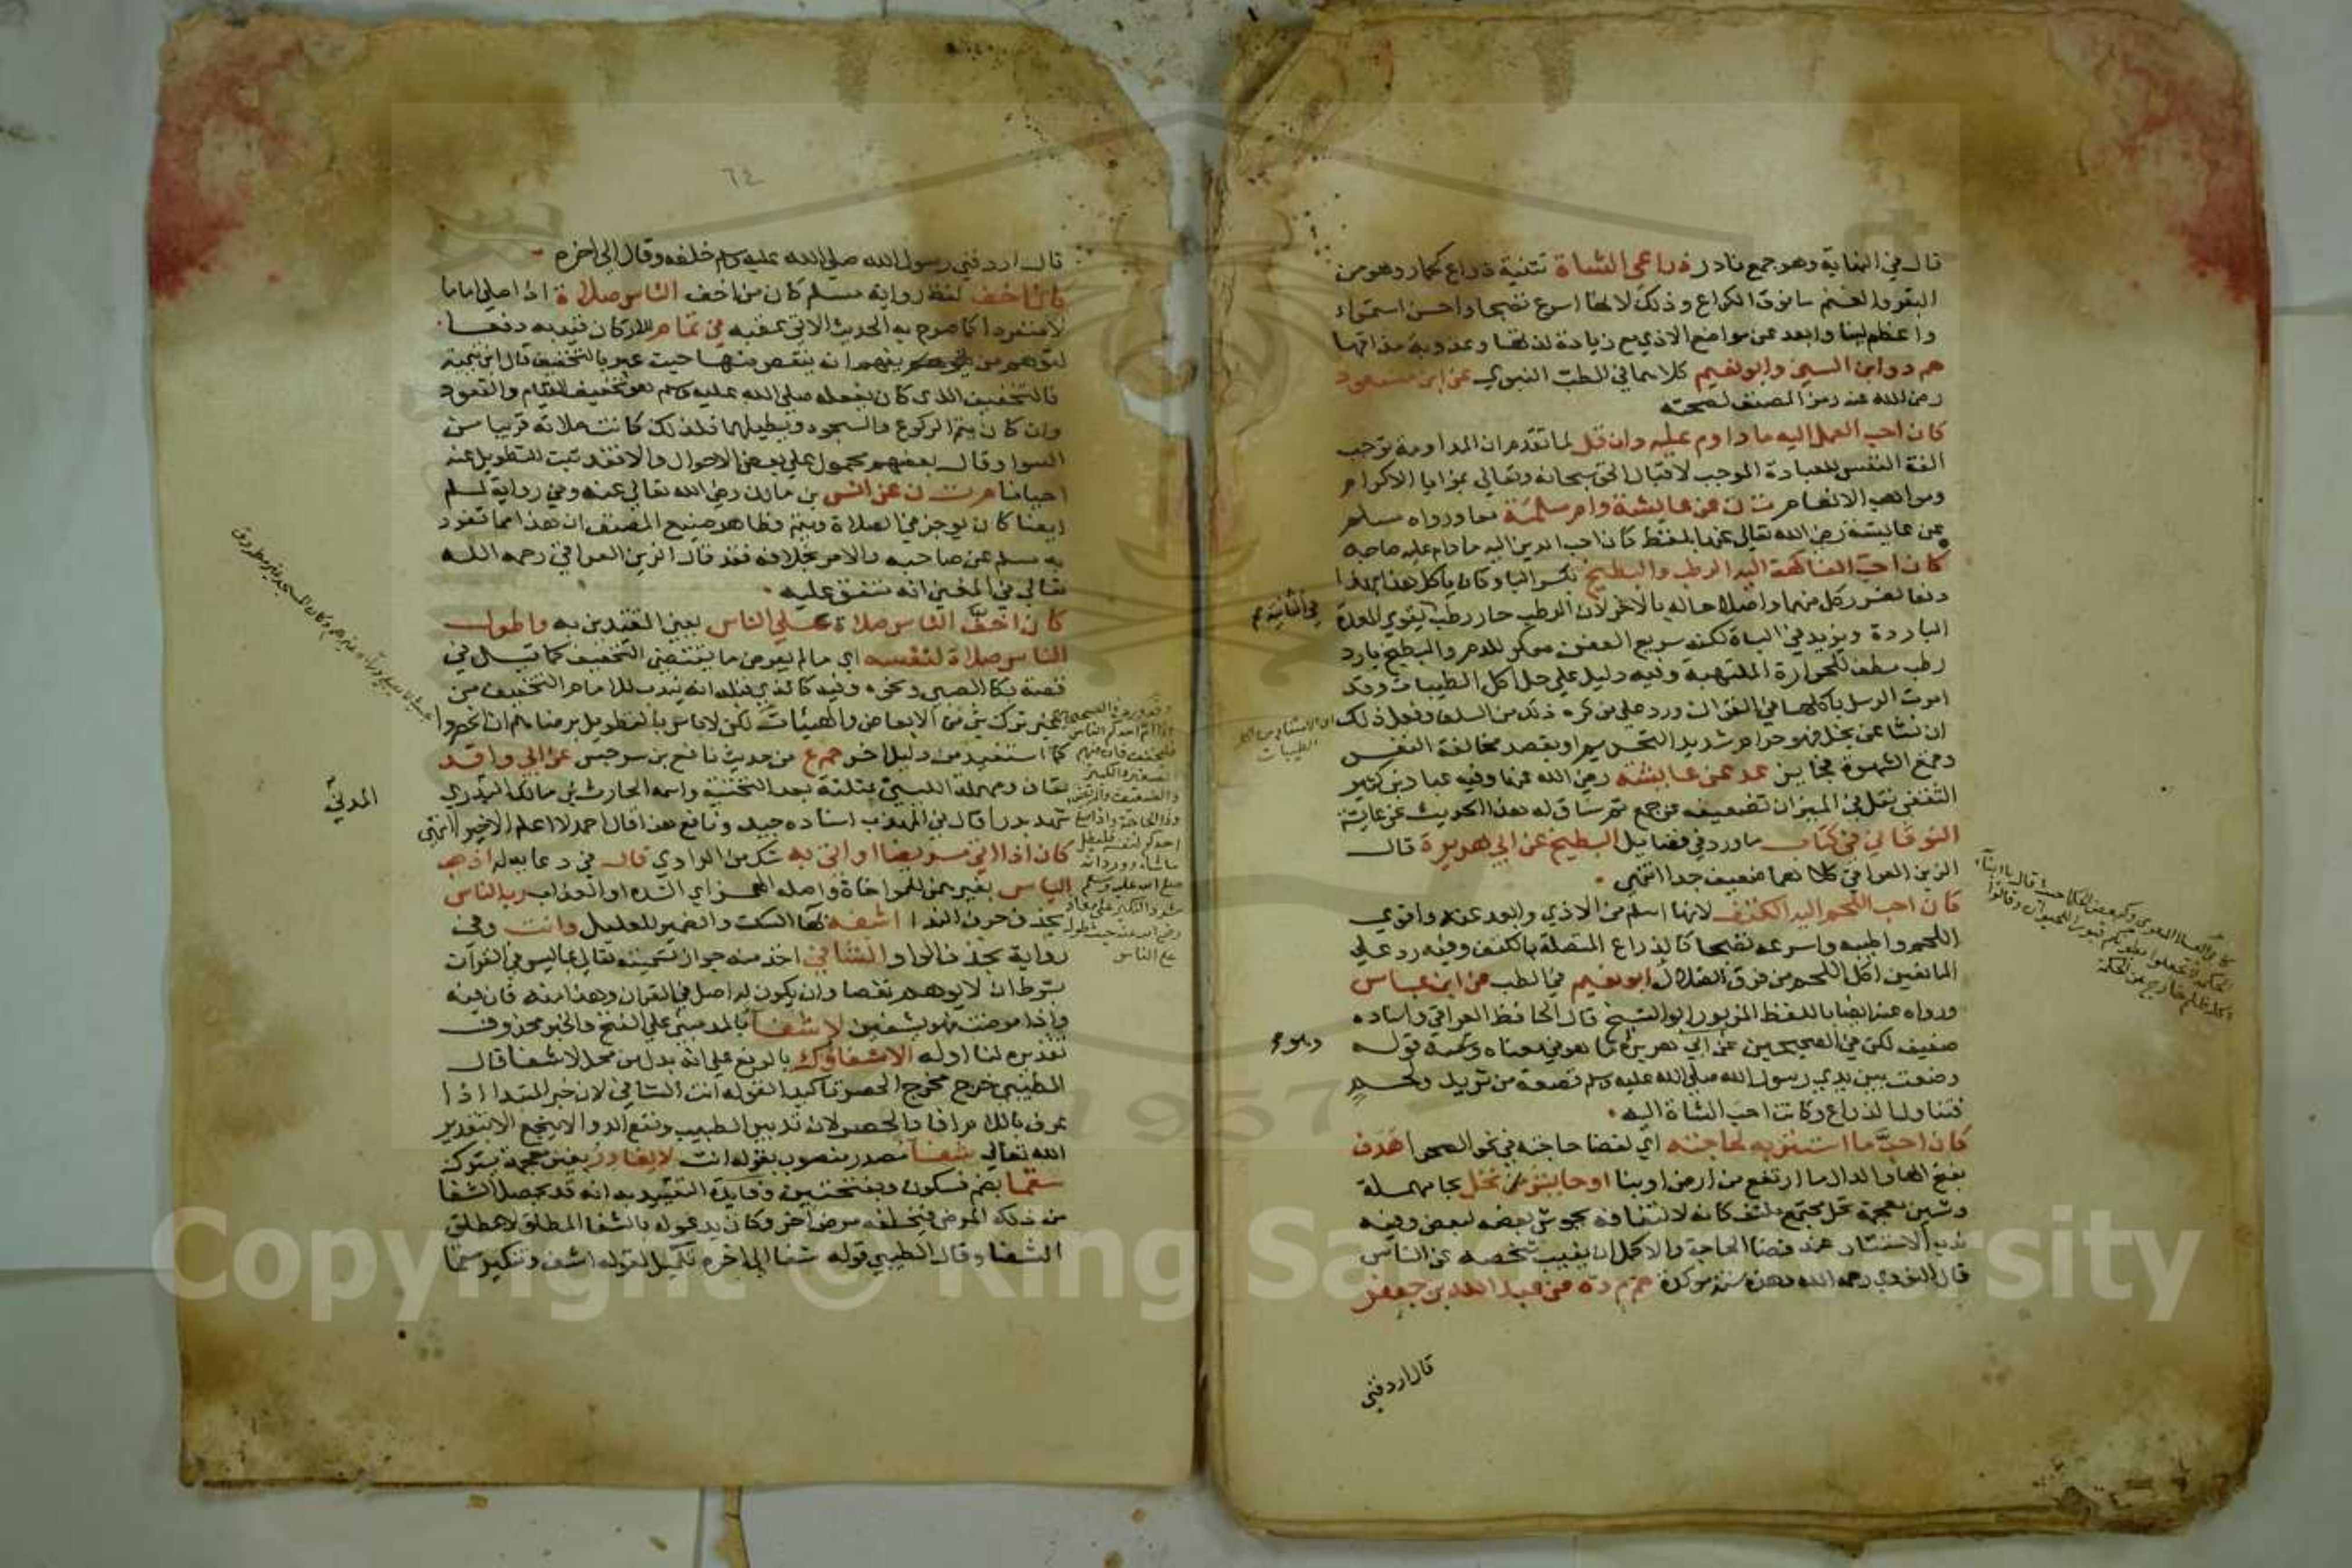 قال في النهاية وهو جمع نادر ذراعي الشاة تثنية ذراع كحمار وهو من
البقر والغنم ما فوق الكراع وذلك لانها اسرع نضجا واحسن استمراء
واعظم لينا وابعد عن مواضع الاذي مع زيادة لذتها وعذوبة مذاقها
حم د وابن السني وابو نعيم كلاهما في الطب النبوي عن ابن مسعود
رضي الله عنه رمز المصنف لصحته
كان احب العمل اليه ما داوم عليه وان قل لما تقدم ان المداومة توجب
الفة النفس للعبادة الموجب لاقبال الحق سبحانه وتعالي بمزايا الاكرام
ومواهب الانعام ت ن عن عايشة وام سلمة معا ورواه مسلم
عن عايشة رضي الله تعالي عنها بلفظ كان احب الدين اليه ما دام عليه صاحبه
كان احب الفاكهة اليه الرطب والبطيخ بكسر البا وكان ياكل هذا بهذا
دفعا لضرر كل منهما واصلاحا له بالاخر لان الرطب حار رطب يقوي المعدة
الباردة ويزيد في الباة لكنه سريع العفن معكر للدم والبطيخ بارد
رطب مطف للحرارة الملتهبة وفيه دليل علي حل اكل الطيبات وقد
امرت الرسل باكلها في القران ورد علي من كره ذلك من السلف وفعل ذلك
ان نشا عن بخل فهو حرام شديد التحريم او بقصد مخالفة النفس
وقمع الشهوة فجايز عد عن عايشة رضي الله عنها وفيه عباد بن كثير
الثقفي نقل في الميزان تضعيفه عن جمع ثم ساق له هذا الحديث عن عايشة
النوقاني في كتاب ما ورد في فضايل البطيخ عن ابي هريرة قال
الزين العراقي كلاهما ضعيف جدا انتهي
كان احب اللحم اليه الكتف لانها اسلم من الاذي وابعد عنه واقوي
اللحم واطيبه واسرعه نضجا كالذراع المتصلة بالكتف وفيه رد علي
المانعين اكل اللحم من فرق الضلال ابو نعيم في الطب عن ابن عباس
ورواه عنه ايضا باللفظ المزبور ابو الشيخ قال الحافظ العراقي واسناده
ضعيف لكن في الصحيحين عن ابي هريرة ما هو في معناه وهو قوله
وضعت بين يدي رسول الله صلي الله عليه وسلم قصعة من ثريد ولحم
فتناول الذراع وكانت احب الشاة اليه
كان احب ما استتر به لحاجته اي لقضا حاجته في نحو الصحرا هدف
بفتح الها والدال ما ارتفع من ارض او بنا او حايش نخل بحا مهملة
وشين معجمة نخل مجتمع ملتف كانه لالتفافه يحوش بعضه لبعض وفيه
ندب الاستتار عند قضا الحاجة والاكمل ان يغيب شخصه عن الناس
قال النووي رحمه الله وهذه سنة موكدة حم م د ه عن عبد الله بن جعفر
قال اردفني
٦٤
قال اردفني رسول الله صلي الله عليه وسلم خلفه وقال الي اخره
كان اخف لفظ رواية مسلم كان من اخف الناس صلاة اذا صلي اماما
لا منفردا كما صرح به الحديث الاتي عقبه في تمام للاركان قيد به دفعا
لتوهم من يفهم انه ينقص منها حيث عبر بالتخفيف قال ابن تيمية
فالتخفيف الذي كان يفعله صلي الله عليه وسلم هو تخفيف القيام والقعود
وان كان يتم الركوع والسجود ويطيلهما فلذلك كانت صلاته قريبا من
السوا وقال بعضهم محمول علي بعض الاحوال والا فقد ثبت التطويل عنه
احيانا م ت ن عن انس بن مالك رضي الله تعالي عنه وفي رواية لمسلم
ايضا كان يوجز في الصلاة ويتم وظاهر صنيع المصنف ان هذا مما تفرد
به مسلم عن صاحبه والامر بخلافه فقد قال الزين العراقي رحمه الله
تعالي في المغني انه متفق عليه
كان اخف الناس صلاة علي الناس يعني المقتدين به واطول
الناس صلاة لنفسه اي ما لم يعرض ما يقتضي التخفيف كما قيل في
قصة بكا الصبي ونحوه وفيه كالذي قبله انه يندب للامام التخفيف من
غير ترك شي من الابعاض والهيئات لكن لا باس بالتطويل برضاهم ان انحصروا
كما استفيد من دليل اخر حم ع من حديث نافع بن سرجس عن ابي واقد
بقاف ومهملة الليثي بمثلثة بعد التحتية واسمه الحارث بن مالك المدني
شهد بدرا قال في المهذب اسناده جيد ونافع هذا قال احمد لا اعلم الا خيرا انتهي
كان اذا اتي مريضا او اتي به شك من الراوي قال في دعايه له اذهب
الباس بغير همز للمواخاة واصله الهمز اي الشدة او العذاب رب الناس
بحذف حرف الندا اشفه بها السكت والضمير للعليل وانت وفي
رواية بحذف الواو الشافي اخذ منه جواز تسميته تعالي بما ليس في القران
بشرط ان لا يوهم نقصا وان يكون له اصل في القران وهذا منه فان فيه
واذا مرضت فهو يشفين لا شفا بالمد مبني علي الفتح والخبر محذوف
تقديره لنا او له الا شفاوك بالرفع علي انه بدل من محل لا شفا قال
الطيبي خرج مخرج الحصر تاكيدا لقوله انت الشافي لان خبر المبتدا اذا
عرف باللام افاد الحصر لان تدبير الطبيب ونفع الدوا لا ينجع الا بتقدير
الله تعالي شفا مصدر منصوب بقوله اشف لا يغادر بغين معجمة يترك
سقما بضم فسكون وبفتحتين وفايدة التقييد به انه قد يحصل الشفا
من ذلك المرض فيخلفه مرض اخر وكان يدعو له بالشفا المطلق لا مطلق
الشفا وقال الطيبي قوله شفا الي اخره تكميل لقوله اشف وتنكير سقما
المدني
Copyright © King Saud University
1957